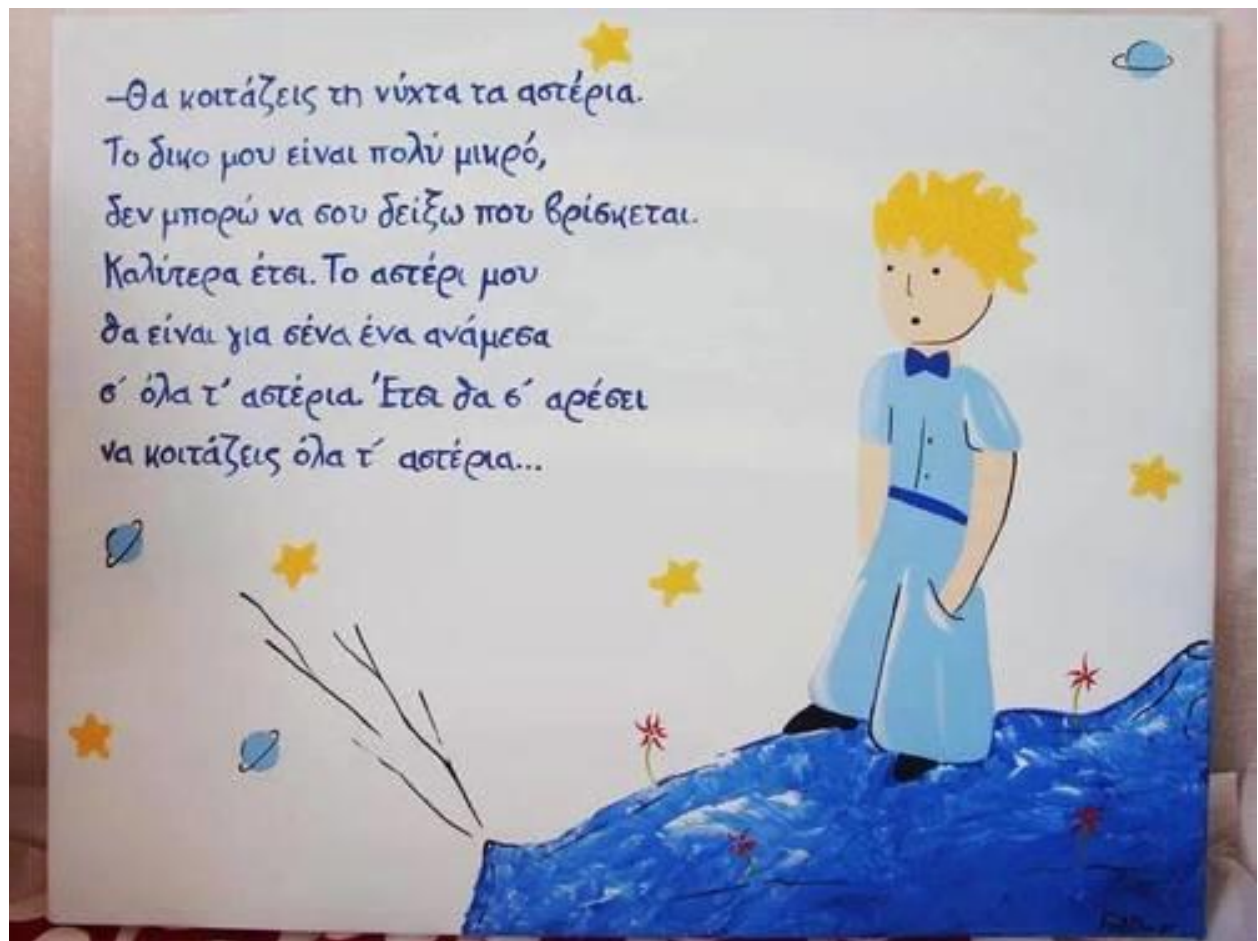 –Θα κοιτάζεις τη νύχτα τα αστέρια.
Το δικο μου είναι πολύ μικρό,
δεν μπορώ να σου δείξω που βρίσκεται.
Καλύτερα έτσι. Το αστέρι μου
θα είναι για σένα ένα ανάμεσα
σ' όλα τ' αστέρια. Έτσι θα σ' αρέσει
να κοιτάζεις όλα τ' αστέρια...